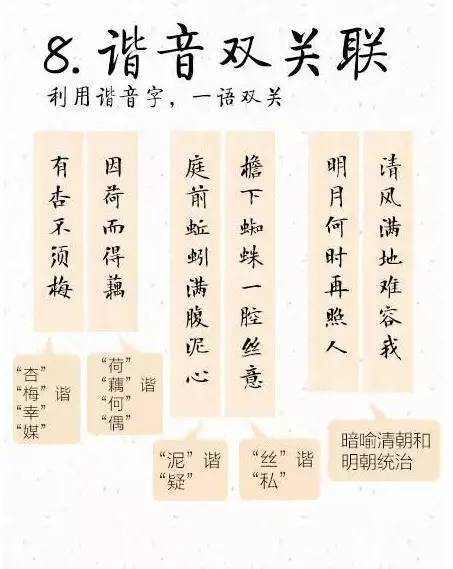 8.谐音双关联
利用谐音字，一语双关
清风满地难容我
明月何时再照人
檐下蜘蛛一腔丝意
庭前蚯蚓满腹泥心
因荷而得藕
有杏不须梅
“杏”
“梅”谐
“幸”
“媒”
“荷”
“藕”谐
“何”
“偶”
“泥”谐
“疑”
“丝”谐
“私”
暗喻清朝和
明朝统治